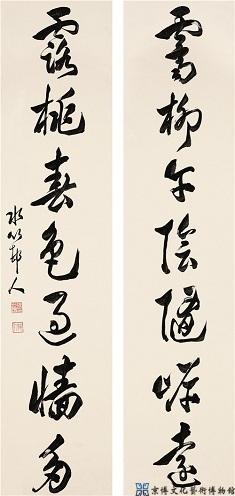 柳午陰隨遠
露桃春色過牆多
水竹邨人
京博文化藝術博物館